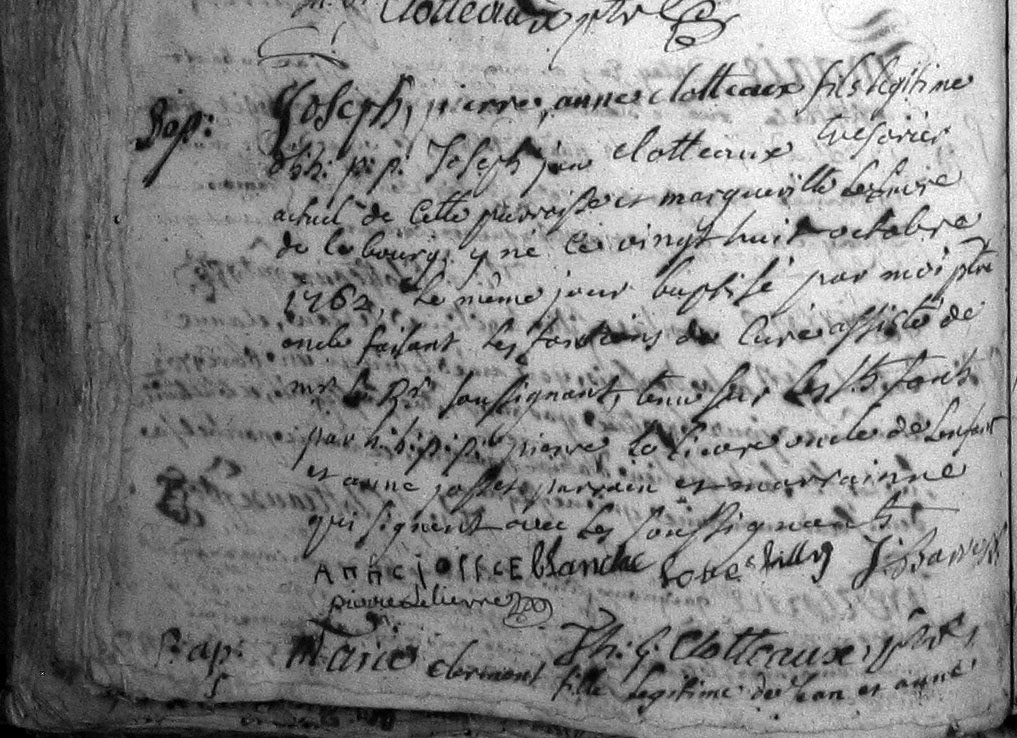 Clotteaux ptre
Bap: Joseph, pierre, anne clotteaux fils legitime
d'hh. p. p. Joseph jan clotteaux tresorier
actuel de cette parroisse et margueritte
de ce bourg, y ne ce vingt huit octobre
1762, le même jour baptisé par moi ptre
oncle faisant les fonctions de Curé assisté de
mr le Rr soussignant, tenu sur les fonts
par h. h. p. p. pierre oncle de lenfant
et anne josset parrain et marrainne
qui signent avec les soussignants
Anne jossce blanche
pierre lelievre
Th. G. Clotteaux, ptre
Bap: Marie clermont fille legitime de Jean et anne